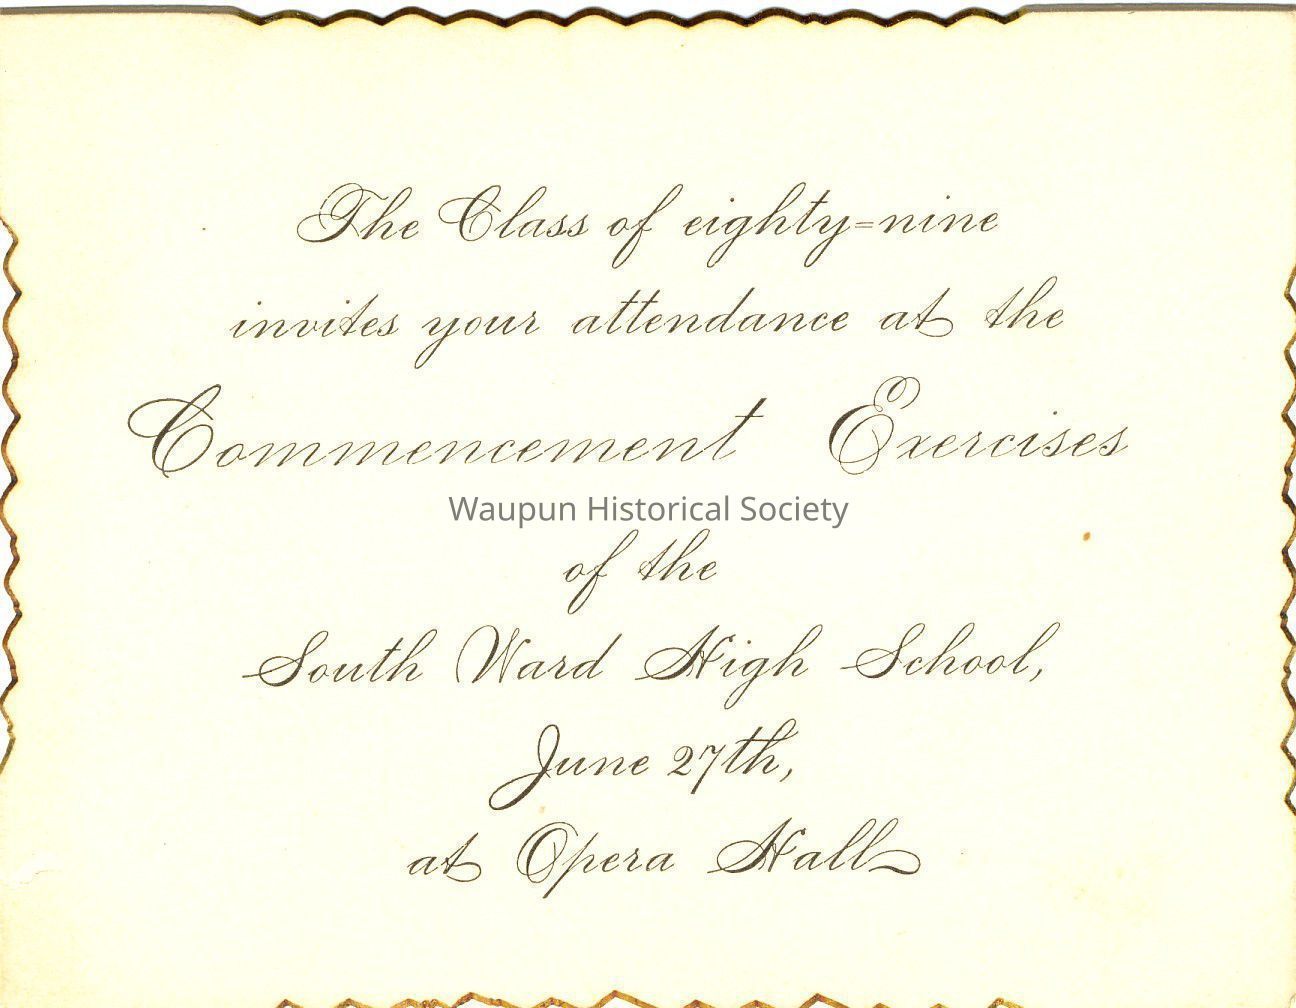 The Class of eighty=nine
invites your attendance at the
Commencement Exercises
Waupun Historical Society
of the
South Ward High School,
June 27th,
at Opera Hall